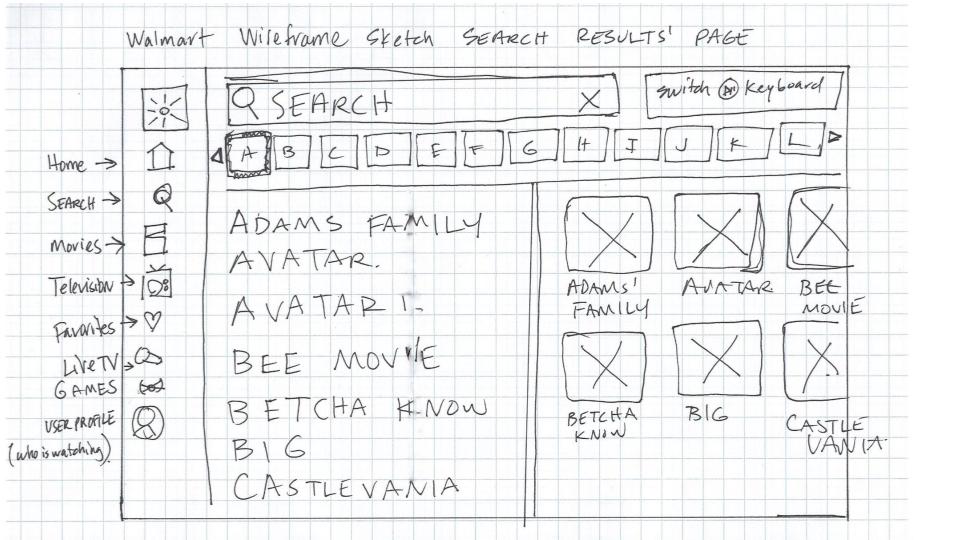 Walmart Wireframe Sketch SEARCH RESULTS' PAGE
SEARCH X
switch keyboard
A B C D E F G H I J K L
Home
SEARCH
Movies
Television
Favorites
Live TV
GAMES
USER PROFILE
(who is watching)
ADAMS FAMILY
AVATAR.
AVATAR 1.
BEE MOVIE
BETCHA KNOW
BIG
CASTLEVANIA
ADAMS'
FAMILY
AVATAR
BEE
MOVIE
BETCHA
KNOW
BIG
CASTLE
VANIA